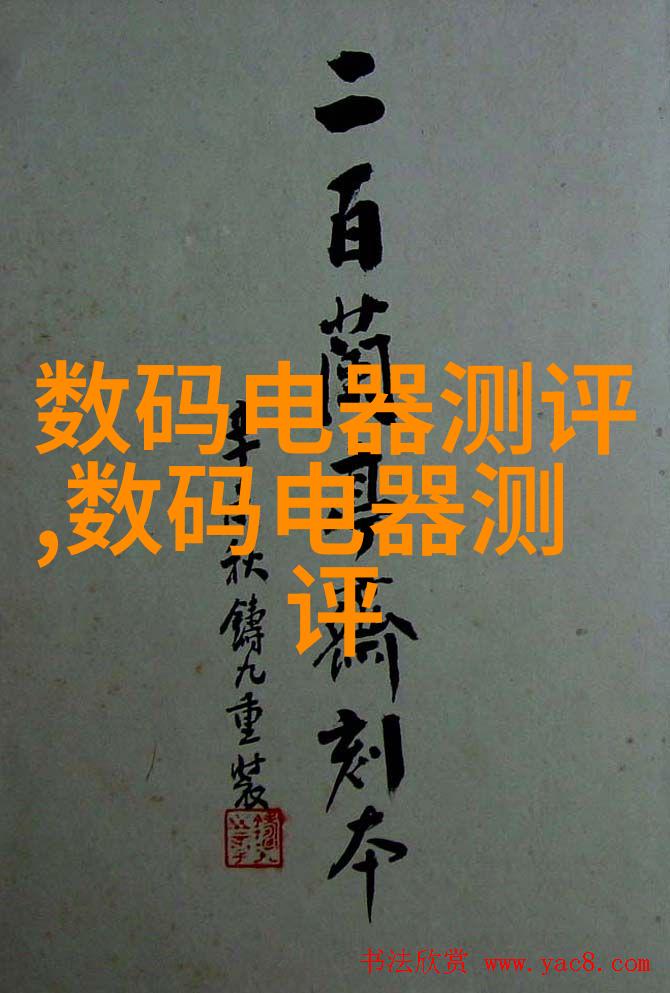 数码电器测评
,数码电器测
评
二百蘭亭齋刻本
秋鑄九重裝
书法欣赏 www.yac8.com